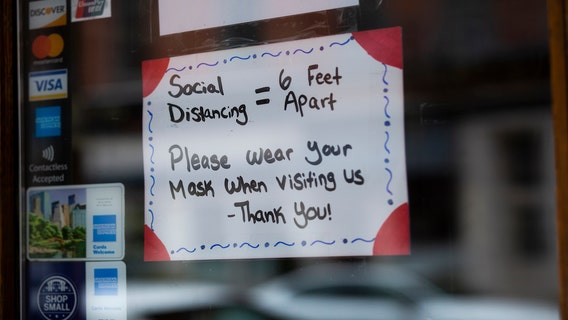 DISCOVER
mastercard
VISA
Contactless
Accepted
Cards
Welcome
SHOP
SMALL
Social = 6 Feet
Distancing Apart
Please wear your
Mask when visiting us
-Thank You!